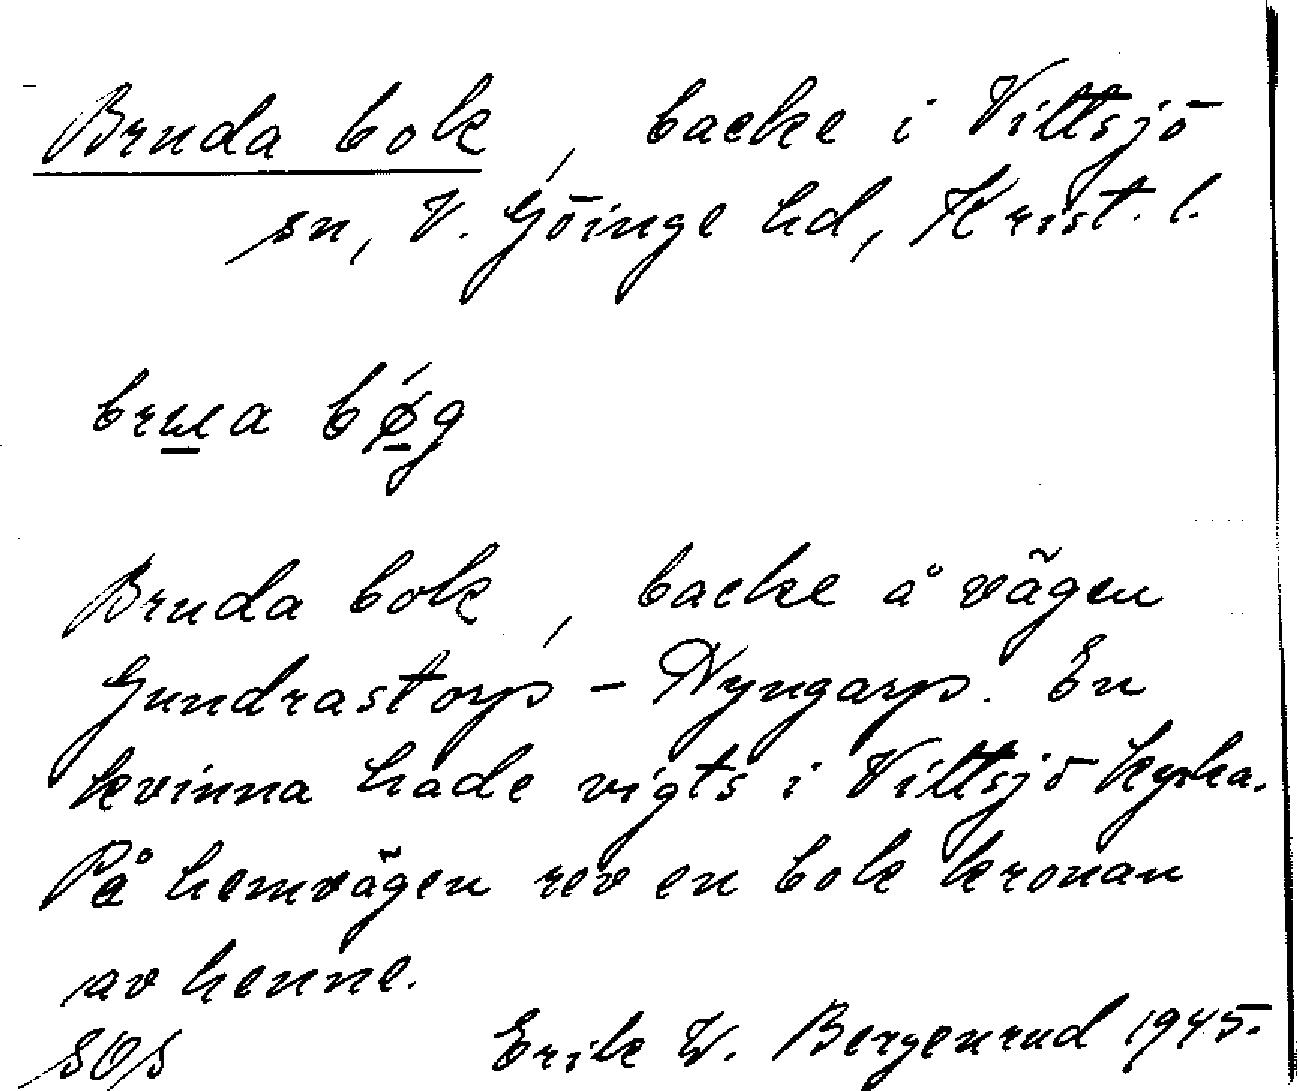 Bruda bok, backe i Vittsjö
sn, V. Göinge hd, Krist. l.
Bruda bok, backe å vägen
Gundrastorp - Nyngarp. En
kvinna hade vigts i Vittsjö kyrka.
På hemvägen rev en bok kronan
av henne.
SOS Erik W. Bergenrud 1945.